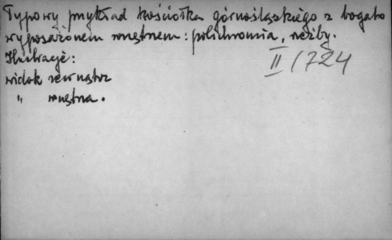 Typowy przykład kościółka górnośląskiego z bogato
wyposażonem wnętrzem: polichromia, rzeźby.
Ilustracje:
II/724
widok zewnątrz
" wnętrza.